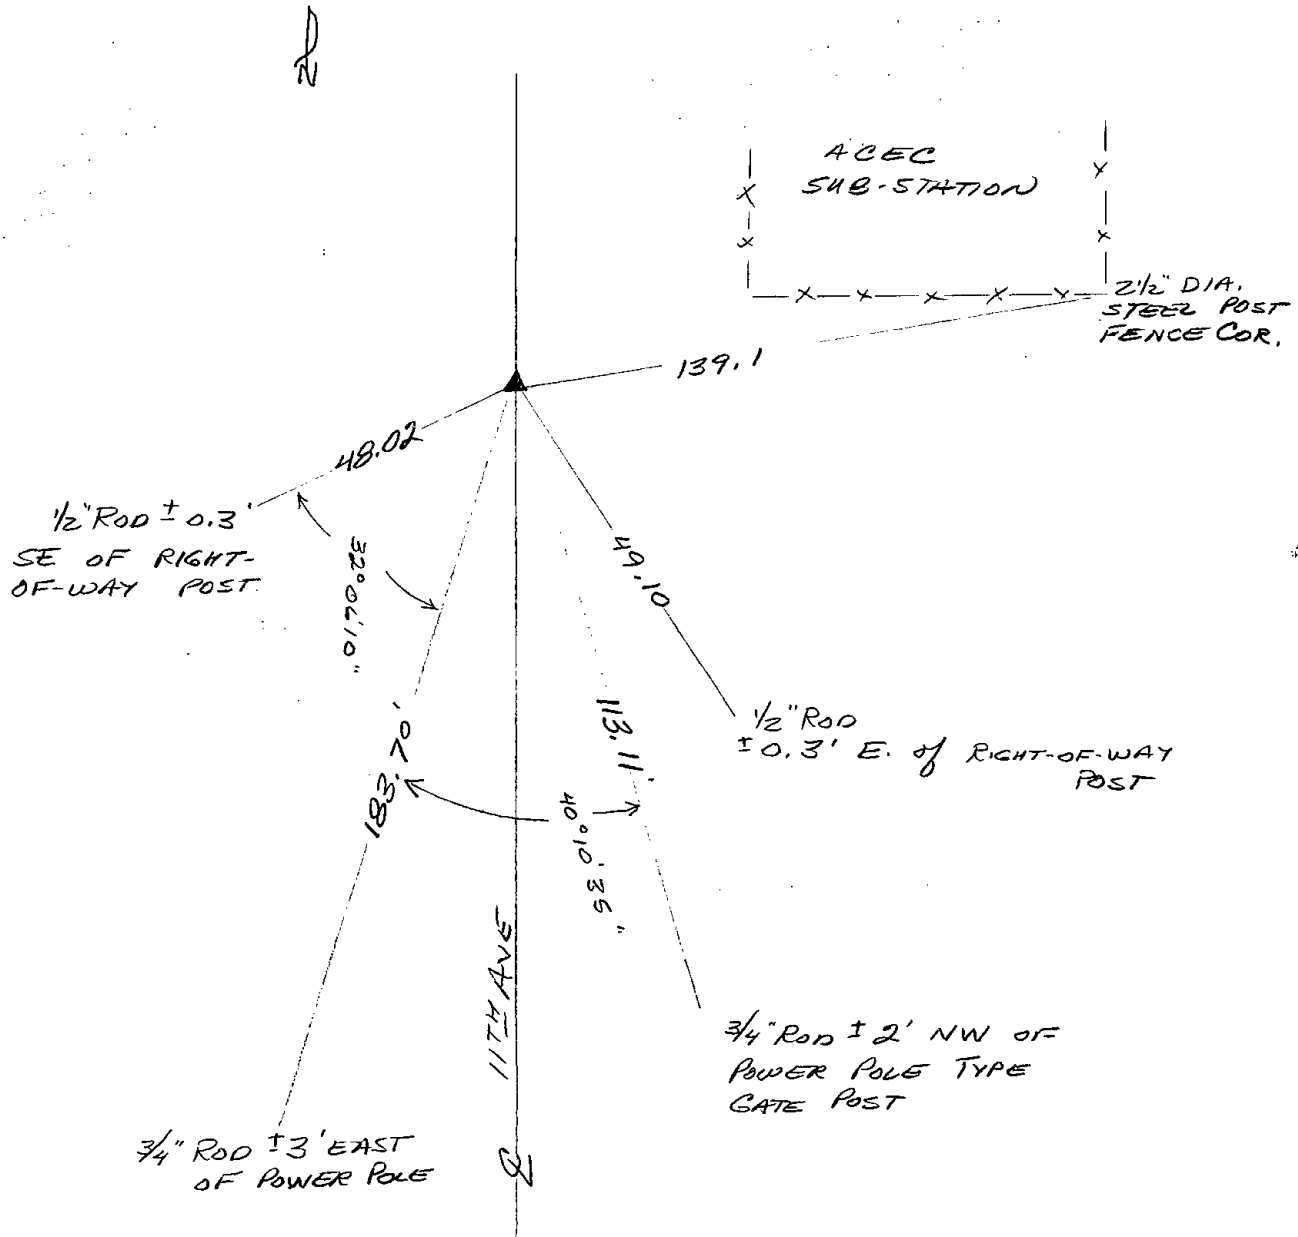 N
ACEC
SUB-STATION
2 1/2" DIA.
STEEL POST
FENCE COR.
139.1
48.02
1/2" ROD ± 0.3'
SE OF RIGHT-
OF-WAY POST
32°06'10"
49.10
1/2" ROD
± 0.3' E. of RIGHT-OF-WAY
POST
183.70'
113.11'
40°10'35"
11TH AVE
3/4" ROD ± 2' NW OF
POWER POLE TYPE
GATE POST
3/4" ROD ± 3' EAST
OF POWER POLE
℄